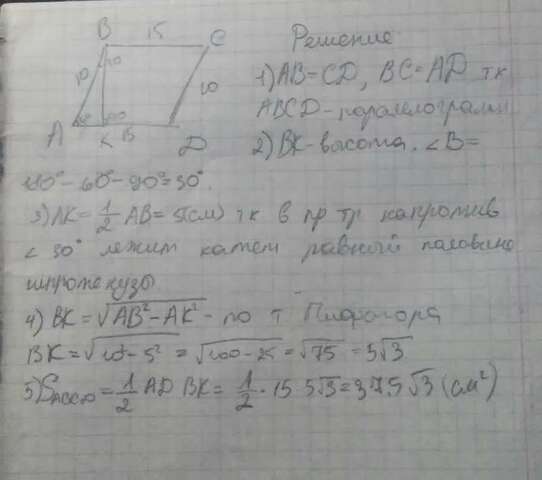 B 15 C
10 30 10
A 60 90 K 15 D
Решение
1) AB = CD, BC = AD тк
ABCD - паралелограмм
2) BK - высота. ∠B =
180° - 60° - 90° = 30°.
3) AK = 1/2 AB = 5(см) тк в пр тр напротив
∠ 30° лежит катет равный половине
гипотенузы
4) BK = √(AB² - AK²) - по т Пифагора
BK = √(10² - 5²) = √(100 - 25) = √75 = 5√3
5) S ABCD = 1/2 AD BK = 1/2 · 15 5√3 = 37.5√3 (см²)